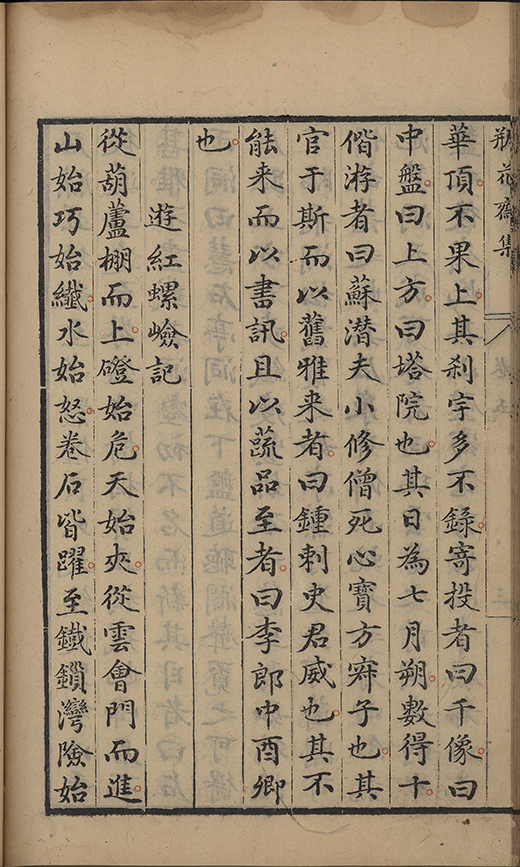 瓶花齋集
華頂不果上其刹宇多不錄寄投者曰千像曰
中盤曰上方曰塔院也其日為七月朔數得十
偕游者曰蘇潜夫小修僧死心寶方寂子也其
官于斯而以舊雅来者曰鍾刺史君威也其不
能来而以書訊且以蔬品至者曰李郎中酉卿
也
遊紅螺嶮記
從葫蘆棚而上磴始危天始夾從雲會門而進
山始巧始纖水始怒卷石皆躍至鐵鎖灣險始